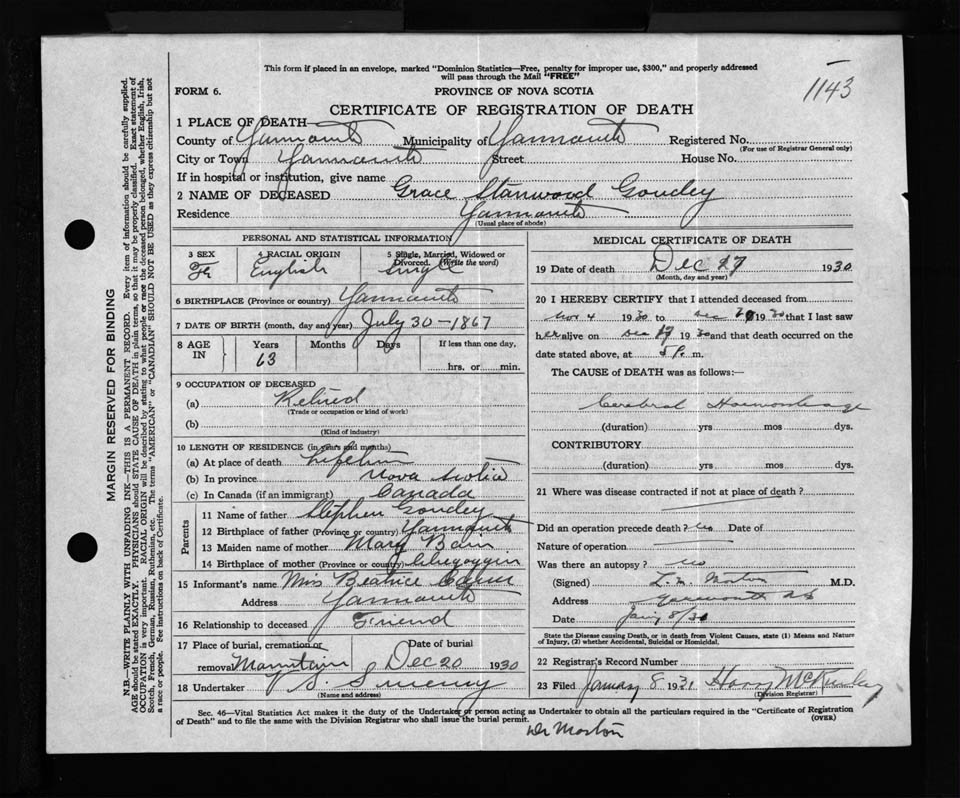 This form if placed in an envelope, marked "Dominion Statistics—Free, penalty for improper use, $300," and properly addressed
will pass through the Mail "FREE"
1143
FORM 6. PROVINCE OF NOVA SCOTIA
CERTIFICATE OF REGISTRATION OF DEATH
1 PLACE OF DEATH
County of Yarmouth Municipality of Yarmouth Registered No.
(For use of Registrar General only)
City or Town Yarmouth Street House No.
If in hospital or institution, give name
2 NAME OF DECEASED Grace Stanwood Goudey
Residence Yarmouth
(Usual place of abode)
PERSONAL AND STATISTICAL INFORMATION
3 SEX 4 RACIAL ORIGIN 5 Single, Married, Widowed or
Divorced. (Write the word)
English Single
6 BIRTHPLACE (Province or country) Yarmouth
7 DATE OF BIRTH (month, day and year) July 30-1867
8 AGE IN Years Months Days If less than one day,
63
hrs. or min.
9 OCCUPATION OF DECEASED
(a) Retired
(Trade or occupation or kind of work)
(b)
(Kind of industry)
10 LENGTH OF RESIDENCE (in years and months)
(a) At place of death Lifetime
(b) In province Nova Scotia
(c) In Canada (if an immigrant) Canada
Parents
11 Name of father Stephen Goudey
12 Birthplace of father (Province or country) Yarmouth
13 Maiden name of mother Mary Bain
14 Birthplace of mother (Province or country) Chegoggin
15 Informant's name Miss Beatrice
Address Yarmouth
16 Relationship to deceased Friend
17 Place of burial, cremation or Date of burial
removal Mountain Dec 20 1930
18 Undertaker V. S. Sweeny
(Name and address)
MEDICAL CERTIFICATE OF DEATH
19 Date of death Dec 1930
(Month, day and year)
20 I HEREBY CERTIFY that I attended deceased from
Nov 4 1930 to Dec 1930 that I last saw
her alive on Dec 1930 and that death occurred on the
date stated above, at 5 P. m.
The CAUSE of DEATH was as follows:—
Cerebral Haemorrhage
(duration) yrs mos dys.
CONTRIBUTORY
(duration) yrs mos dys.
21 Where was disease contracted if not at place of death?
Did an operation precede death? no Date of
Nature of operation
Was there an autopsy? no
(Signed) L. M. Morton M.D.
Address Yarmouth NS
Date Jan 8/31
State the Disease causing Death, or in death from Violent Causes, state (1) Means and Nature
of Injury, (2) whether Accidental, Suicidal or Homicidal.
22 Registrar's Record Number
23 Filed January 8 1931 Harry McKinley
(Division Registrar)
Sec. 46—Vital Statistics Act makes it the duty of the Undertaker or person acting as Undertaker to obtain all the particulars required in the "Certificate of Registration
of Death" and to file the same with the Division Registrar who shall issue the burial permit. (OVER)
Dr Morton
MARGIN RESERVED FOR BINDING
N.B.—WRITE PLAINLY WITH UNFADING INK—THIS IS A PERMANENT RECORD. Every item of information should be carefully supplied.
AGE should be stated EXACTLY. PHYSICIANS should STATE CAUSE OF DEATH in plain terms, so that it may be properly classified. Exact statement of
OCCUPATION is very important. RACIAL ORIGIN will be described by stating to what people or race the deceased person belonged, whether English, Irish,
Scotch, French, German, Russian, Ruthenian, etc. The terms "AMERICAN" or "CANADIAN" SHOULD NOT BE USED as they express citizenship but not
a race or people. See instructions on back of Certificate.